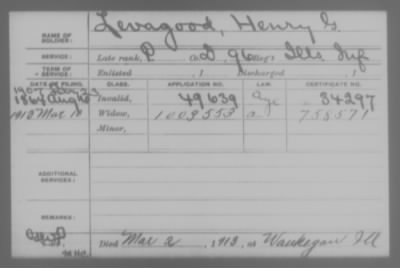 NAME OF SOLDIER: Levagood, Henry G.
SERVICE: Late rank, P Co. D, 96 Reg't Ills. Inf.
TERM OF SERVICE: Enlisted , 1 Discharged , 1
DATE OF FILING. CLASS. APPLICATION NO. LAW. CERTIFICATE NO.
1907
1864 Aug Invalid, 49639 Age 34297
1913 Mar 18 Widow, 1003553 a 758571
Minor,
ADDITIONAL SERVICES:
REMARKS:
Died Mar 2 , 1913, at Waukegan Ill